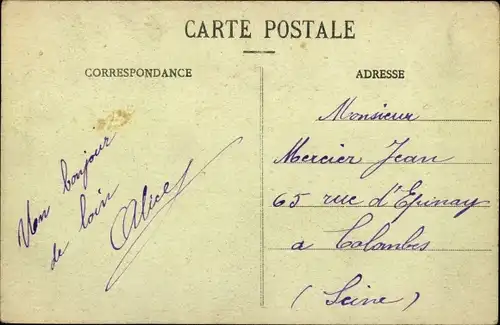 CARTE POSTALE
CORRESPONDANCE
Un bonjour
de loin
Alice
ADRESSE
Monsieur
Mercier Jean
65 rue d'Epinay
a Colombes
(Seine)